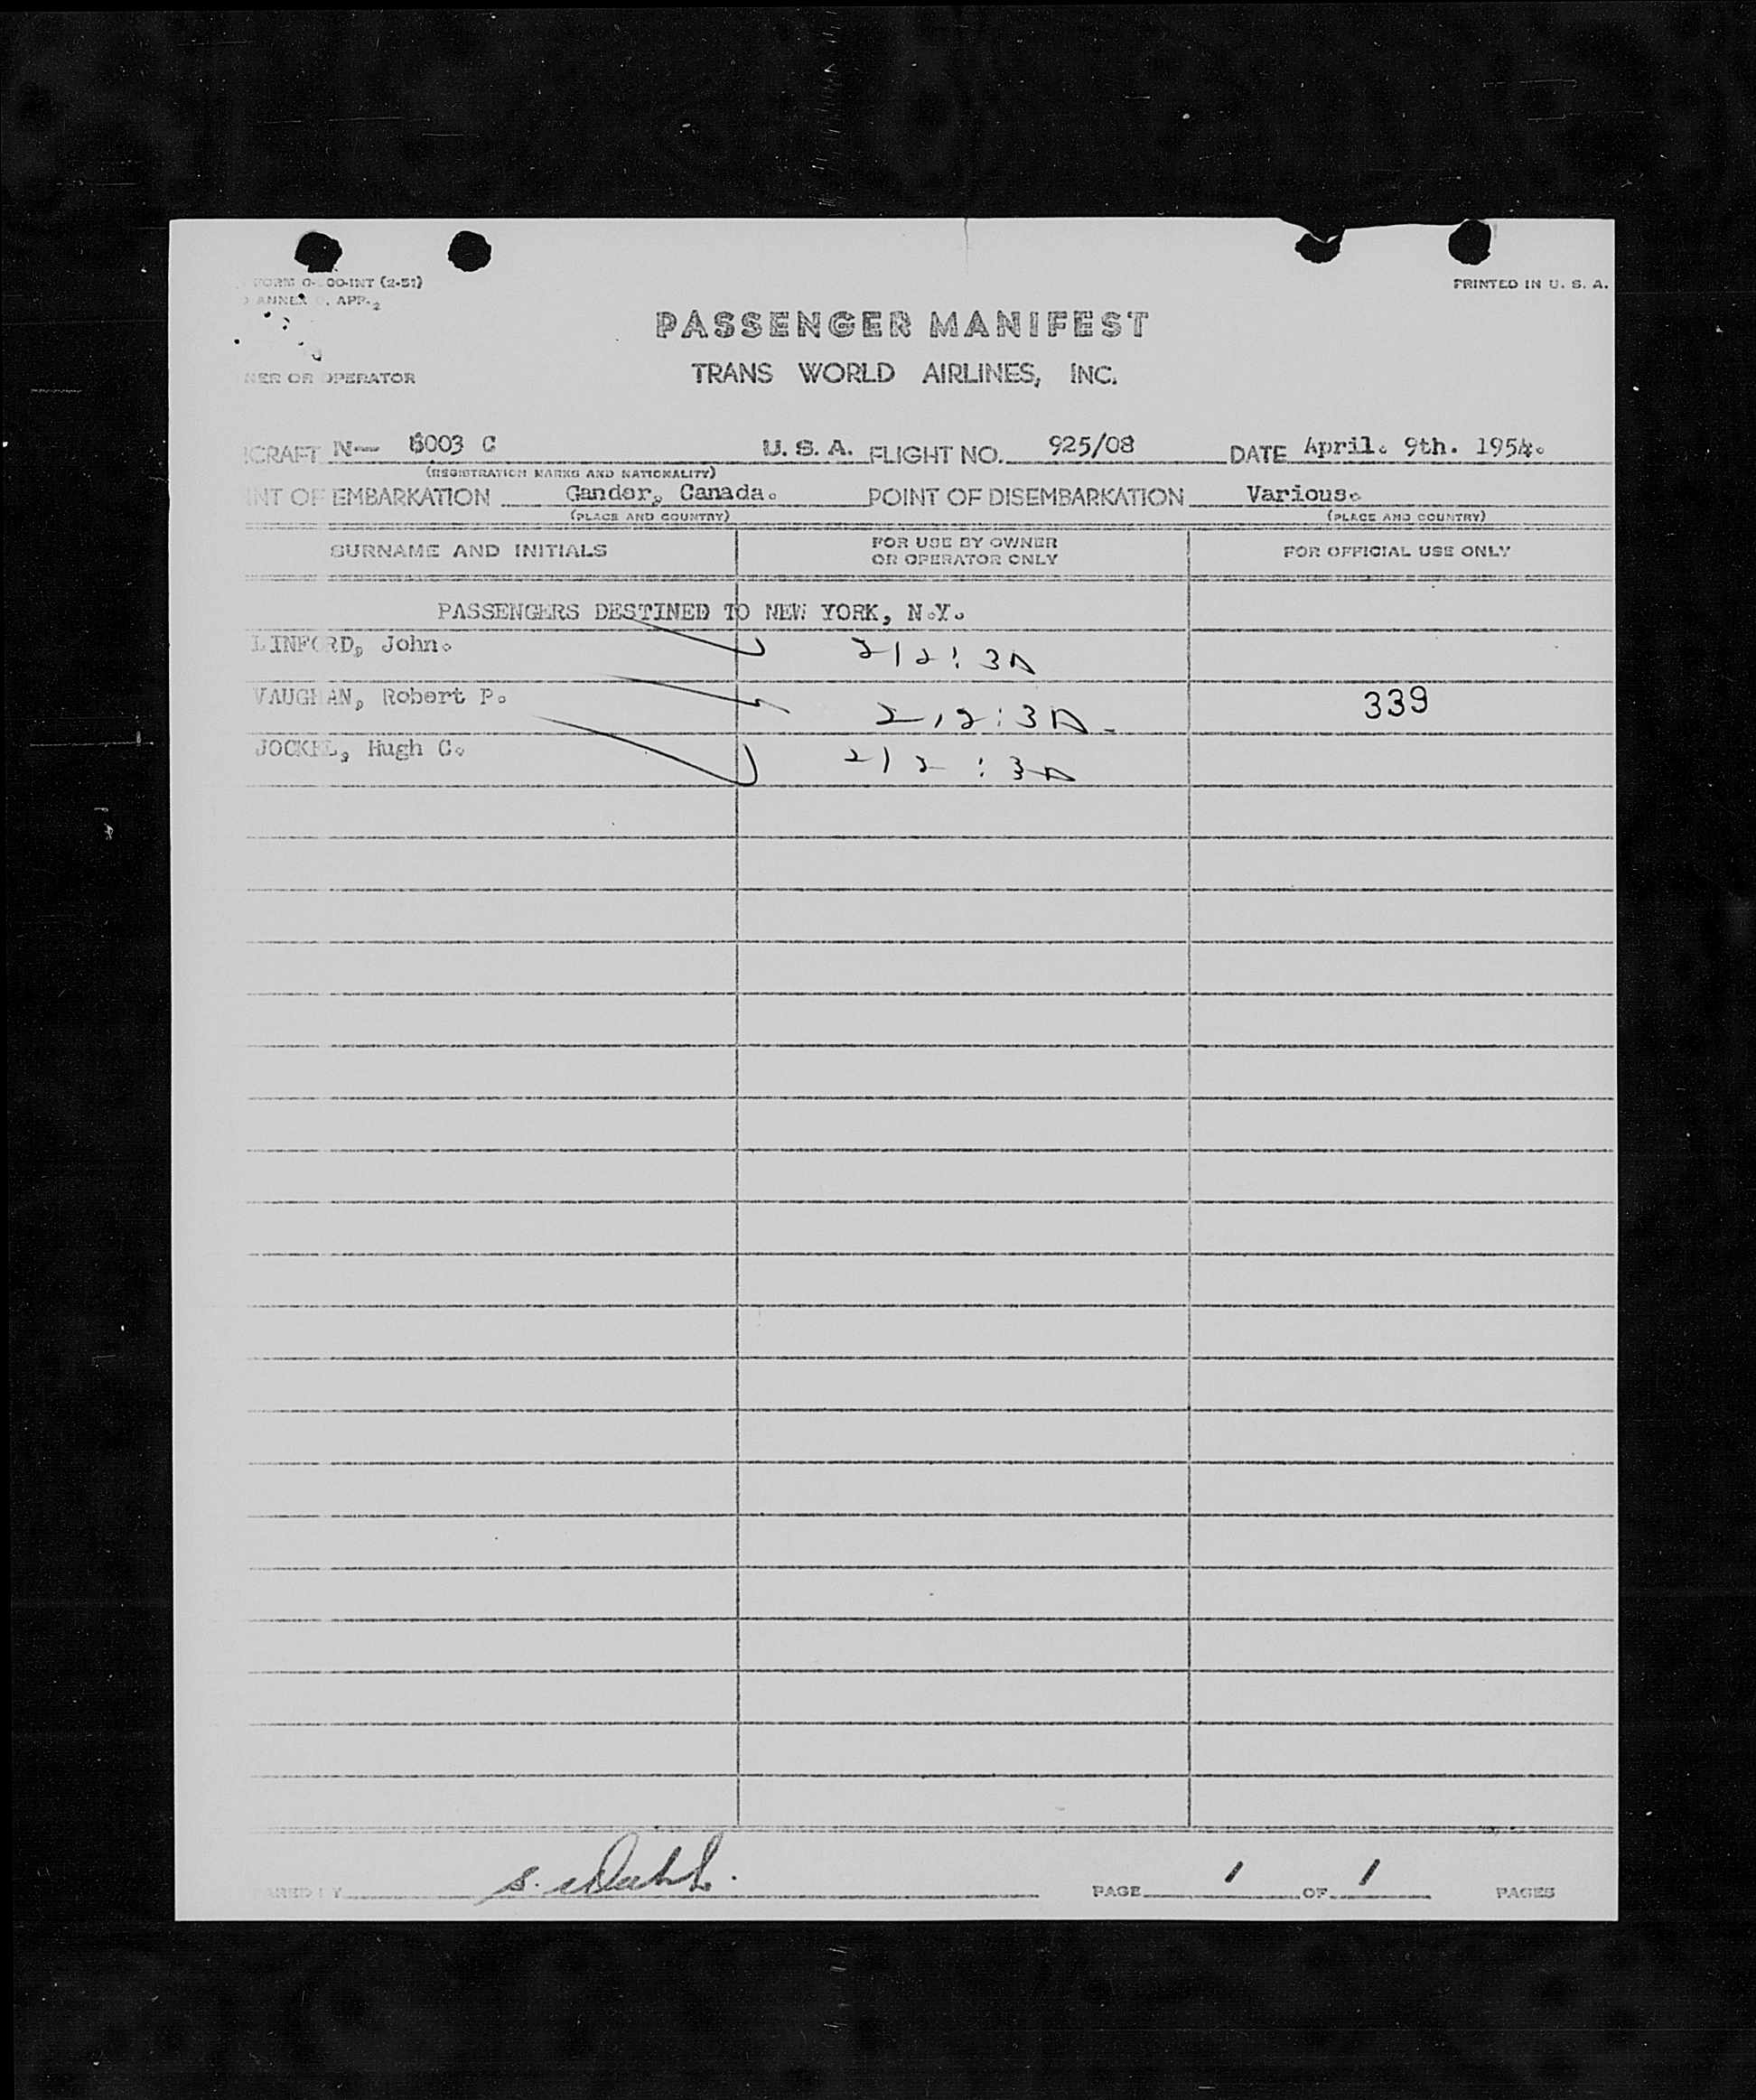 FORM O- 00-INT (2-51)
PRINTED IN U. S. A.
ANNEX , APP. 2
PASSENGER MANIFEST
NER OR OPERATOR
TRANS WORLD AIRLINES, INC.
CRAFT N— 6003 C U. S. A. FLIGHT NO. 925/08 DATE April. 9th. 1954.
(REGISTRATION MARKS AND NATIONALITY)
INT OF EMBARKATION Gander, Canada. POINT OF DISEMBARKATION Various.
(PLACE AND COUNTRY) (PLACE AND COUNTRY)
SURNAME AND INITIALS FOR USE BY OWNER OR OPERATOR ONLY FOR OFFICIAL USE ONLY
PASSENGERS DESTINED TO NEW YORK, N.Y.
LINFORD, John. 212:3A
VAUGHAN, Robert P. 212:3A 339
JOCKEL, Hugh C. 212:3A
ARED BY S. PAGE 1 OF 1 PAGES